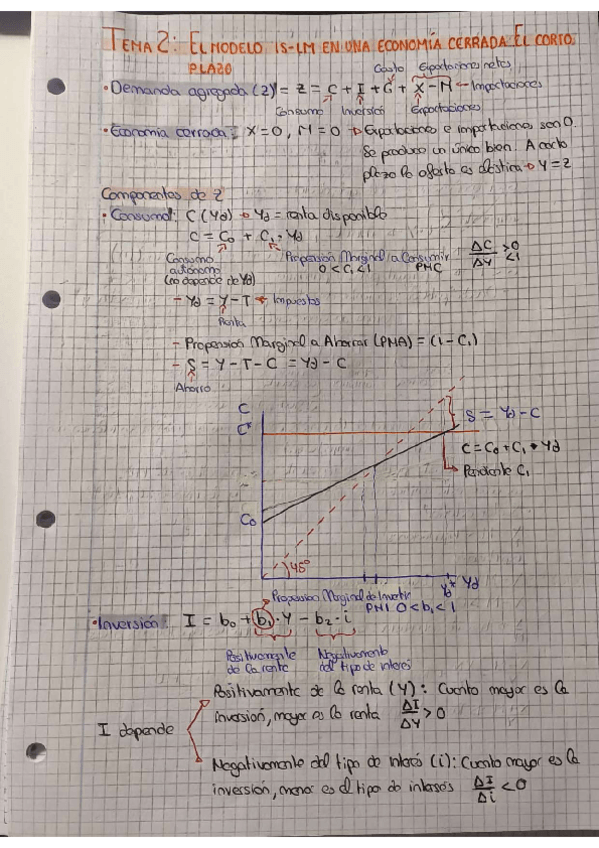 TEMA 2: EL MODELO IS-LM EN UNA ECONOMÍA CERRADA EL CORTO
PLAZO
Gasto Exportaciones netas
• Demanda agregada (Z) = Z = C + I + G + X - M → Importaciones
Consumo Inversión Exportaciones
• Economía cerrada: X=0, M=0 → Exportaciones e importaciones son 0.
Se produce un único bien. A corto
plazo la oferta es elástica → Y=Z
Componentes de Z
• Consumo: C(Yd) → Yd = renta disponible
C = C0 + C1 · Yd
Consumo autónomo (no depende de Yd)
Propensión Marginal a Consumir
0 < C1 < 1 PMC
ΔC/ΔY >0 <1
- Yd = Y - T → Impuestos
Renta
- Propensión Marginal a Ahorrar (PMA) = (1 - C1)
- S = Y - T - C = Yd - C
Ahorro
C
C*
S = Yd - C
C = C0 + C1 · Yd
Pendiente C1
C0
45°
Yd* Yd
Propensión Marginal de Invertir
PMI 0 < b1 < 1
• Inversión: I = b0 + b1 · Y - b2 · i
Positivamente de la renta
Negativamente del tipo de interés
I depende
Positivamente de la renta (Y): Cuanto mayor es la
inversión, mayor es la renta ΔI/ΔY > 0
Negativamente del tipo de interés (i): Cuanto mayor es la
inversión, menor es el tipo de interés ΔI/Δi < 0